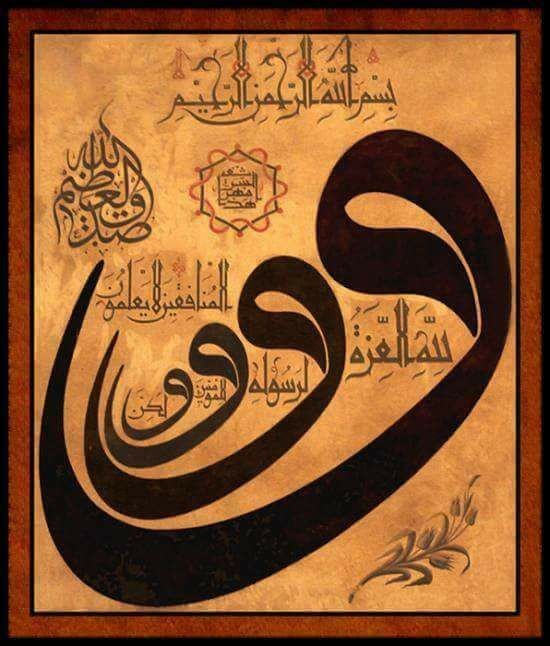 بسم الله الرحمن الرحيم
صدق الله العظيم
ولله العزة
ولرسوله
وللمؤمنين
ولكن
المنافقين لا يعلمون